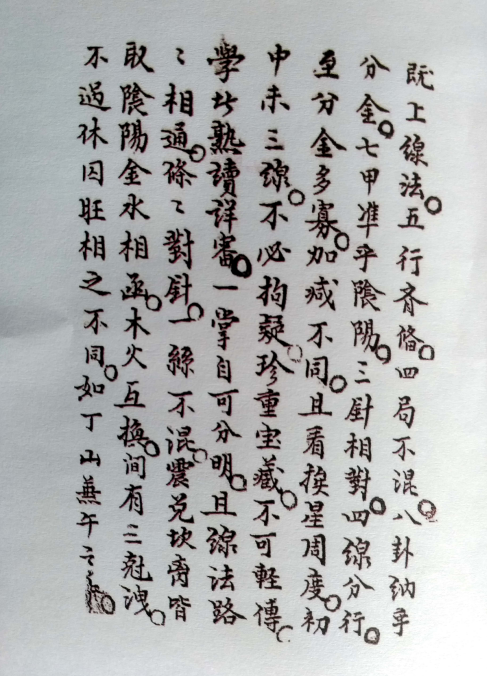 既上線法。五行斉俻。四局不混。八卦納乎
分金。七甲准乎陰陽。三針相對。四線分行。
至分金多寡。加减不同。且看换星周度。初
中末三線。不必拘疑。珍重宝藏。不可輕傳。
學者熟讀詳審。一掌自可分明。且線法路
〻相通。條〻對針。一絲不混。震兑坎离皆
取陰陽。金水相函。木火互换。间有三尅洩。
不過休囚旺相之不同。如丁山兼午之